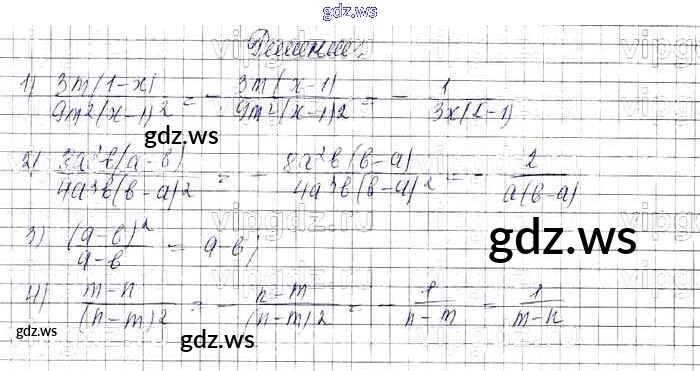 gdz.ws
Решение
1) 3m(1-x) / 9m²(x-1)² = - 3m(x-1) / 9m²(x-1)² = - 1 / 3x(2-1)
gdz.ws
2) 8a²b(a-b) / 4a³b(b-a)² = - 8a²b(b-a) / 4a³b(b-a)² = - 2 / a(b-a)
gdz.ws
3) (a-b)² / a-b = a-b;
4) m-n / (n-m)² = - n-m / (n-m)² = - 1 / n-m = 1 / m-n
gdz.ws
gdz.ws
gdz.ws